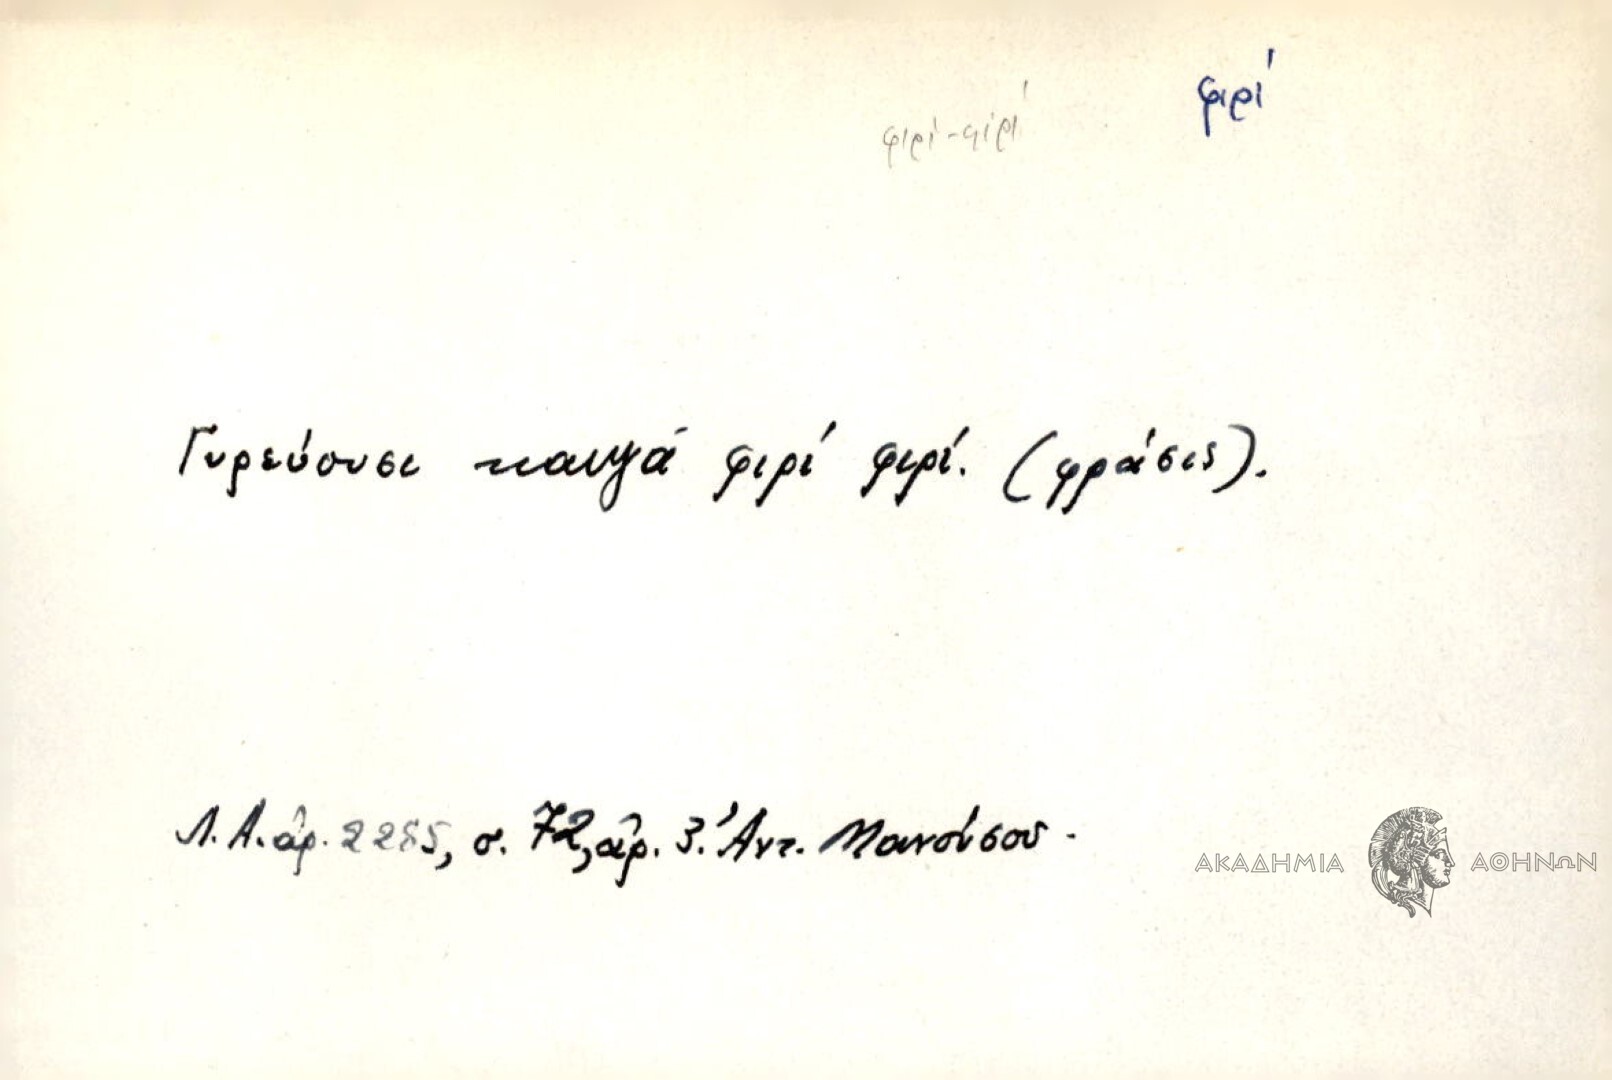 φιρί
φιρί-φιρί
Γυρεύουσι καυγά φιρί φιρί. (φράσις).
Λ. Α. ἀρ. 2285, σ. 72, ἀρ. 3. Ἀντ. Μανούσου.
ΑΚΑΔΗΜΙΑ ΑΘΗΝΩΝ